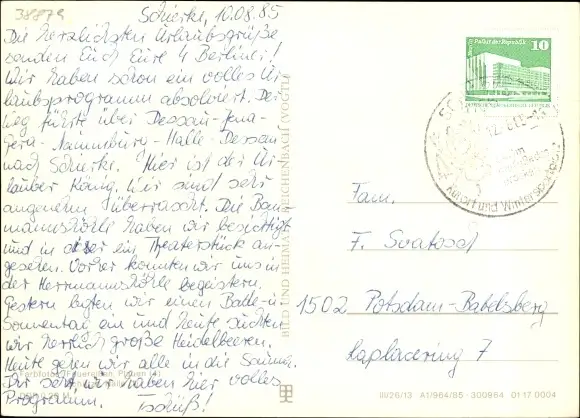 38879
Schierke, 10.08.85
Die herzlichsten Urlaubsgrüße
senden Euch Eure 4 Berliner!
Wir haben schon ein volles Ur-
laubsprogramm absolviert. Der
Weg führte über Dessau-Jena-
Gera-Naumburg-Halle-Dessau
nach Schierke. Hier ist der Ur-
lauber König. Wir sind sehr
angenehm überrascht. Die Bau-
mannshöhle haben wir besichtigt
und in dieser ein Theaterstück an-
gesehen. Vorher konnten wir uns in
der Herrmannshöhle begeistern.
Gestern legten wir einen Bade-u.
Sonnentag ein und heute suchten
wir herrlich große Heidelbeeren.
Heute gehen wir alle in die Sauna.
Ihr seht, wir haben hier volles
Programm. Tschüß!
BILD UND HEIMAT REICHENBACH (VOGTL)
Palast der Republik
10
Kurort und Wintersport
Fam.
F. Svatosch
1502 Potsdam-Babelsberg
Laplacering 7
III/26/13 A1/964/85 300864 01 17 0004